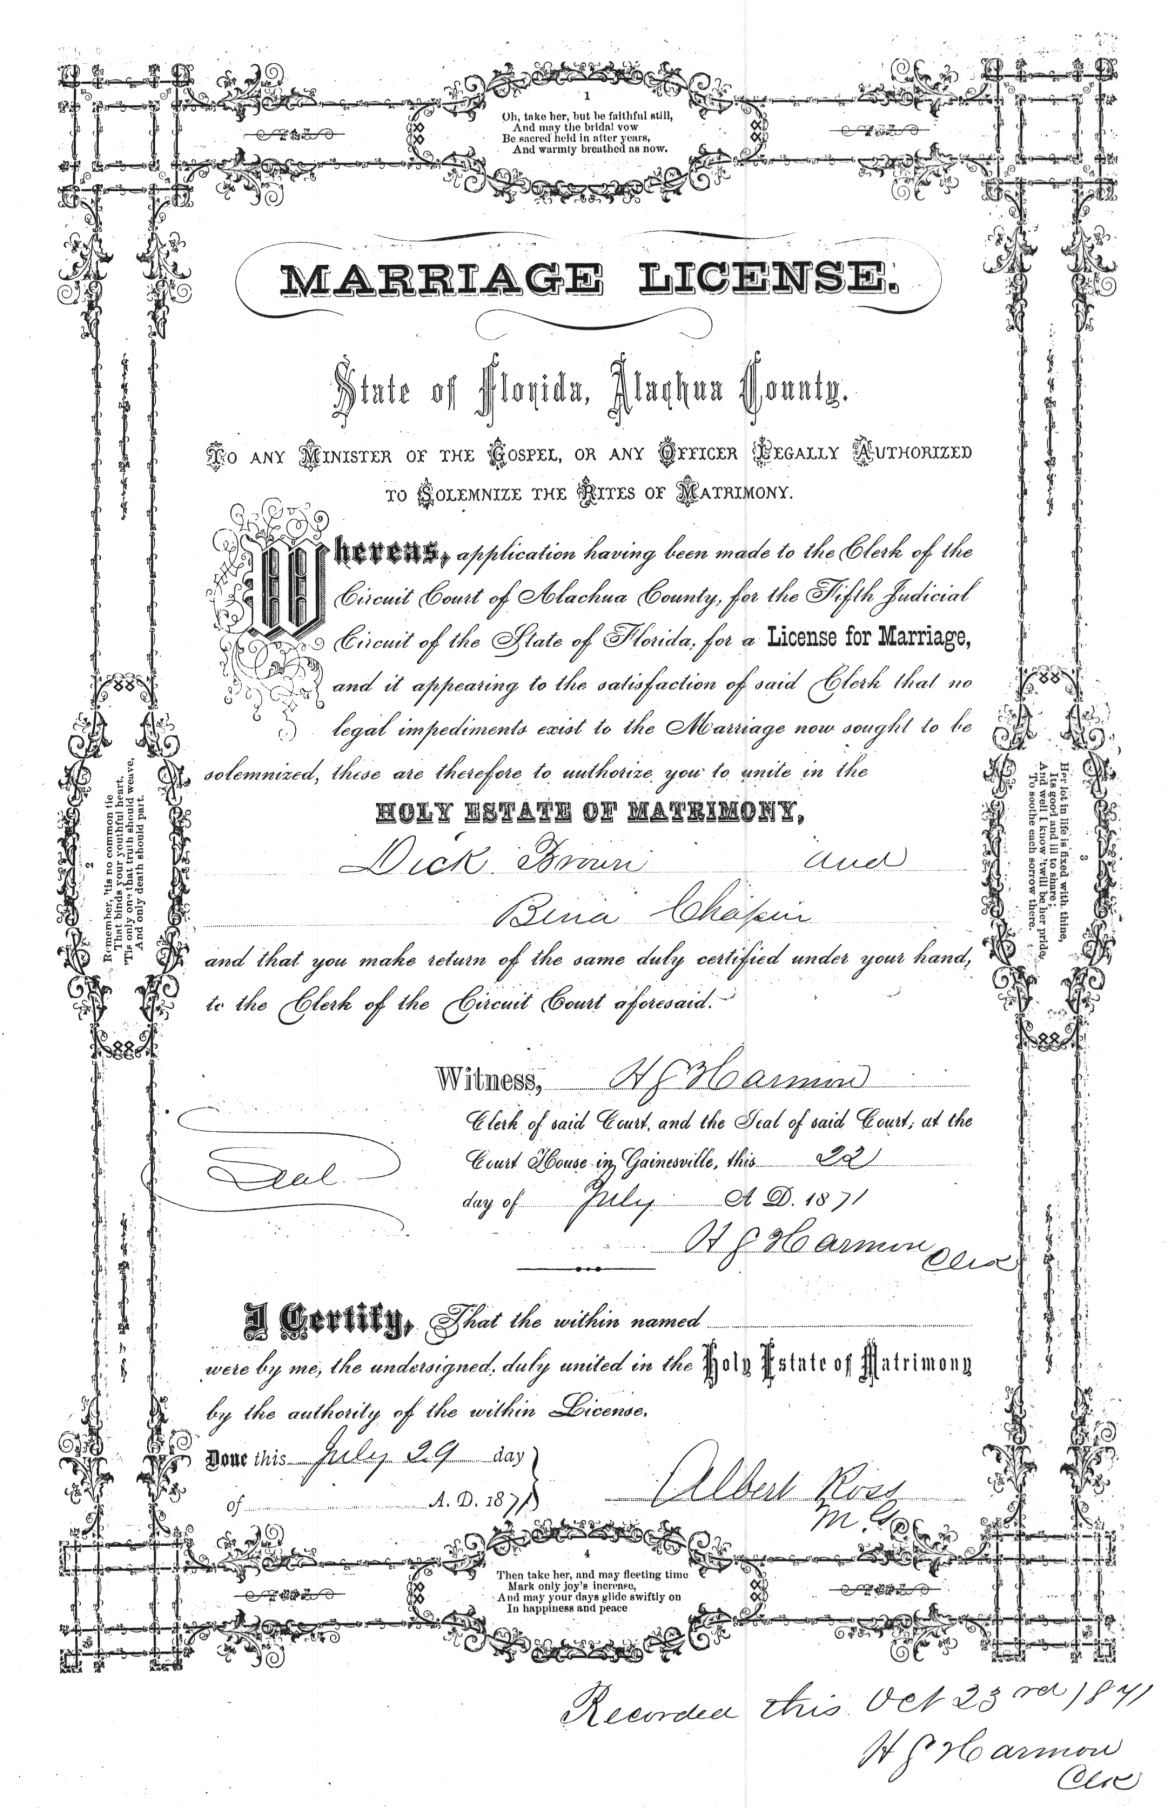 1
Oh, take her, but be faithful still,
And may the bridal vow
Be sacred held in after years,
And warmly breathed as now.
MARRIAGE LICENSE.
State of Florida, Alachua County.
TO ANY MINISTER OF THE GOSPEL, OR ANY OFFICER LEGALLY AUTHORIZED
TO SOLEMNIZE THE RITES OF MATRIMONY.
Whereas, application having been made to the Clerk of the
Circuit Court of Alachua County, for the Fifth Judicial
Circuit of the State of Florida, for a License for Marriage,
and it appearing to the satisfaction of said Clerk that no
legal impediments exist to the Marriage now sought to be
solemnized, these are therefore to authorize you to unite in the
HOLY ESTATE OF MATRIMONY,
Dick Brown and
Bina Chapin
and that you make return of the same duly certified under your hand,
to the Clerk of the Circuit Court aforesaid.
2
Remember, 'tis no common tie
That binds your youthful heart,
'Tis only one that truth should weave,
And only death should part.
3
Her lot in life is fixed with thine,
Its good and ill to share;
And well I know 'twill be her pride,
To soothe each sorrow there.
Witness, H G Harmon
Clerk of said Court, and the Seal of said Court, at the
Court House in Gainesville, this 22
Seal
day of July A D. 1871
H G Harmon
Clk
I Certify, That the within named
were by me, the undersigned, duly united in the Holy Estate of Matrimony
by the authority of the within License.
Done this July 29 day
of A. D. 1871
Albert Ross
M. G.
4
Then take her, and may fleeting time
Mark only joy's increase,
And may your days glide swiftly on
In happiness and peace
Recorded this Oct 23rd 1871
H G Harmon
Clk